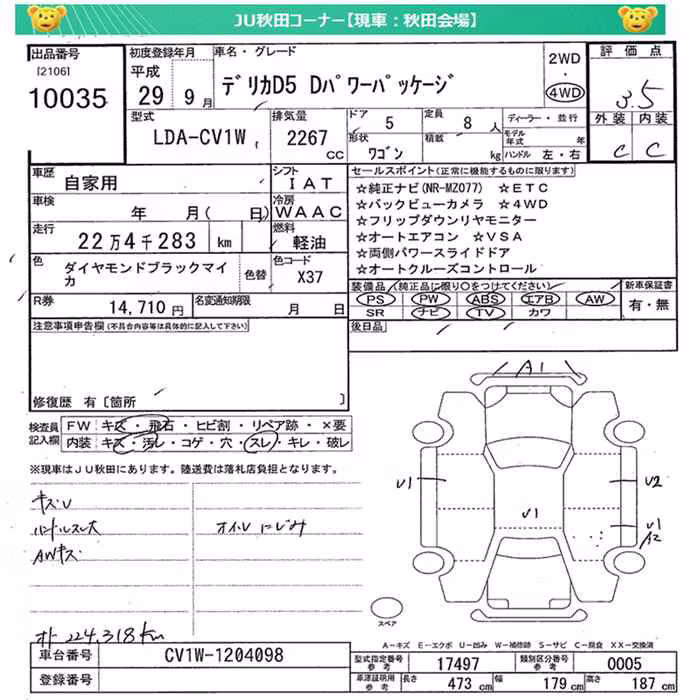 JU秋田コーナー【現車：秋田会場】
出品番号
[2106]
10035
初度登録年月
平成
29 9月
車名・グレード
デリカD5 Dパワーパッケージ
2WD
・
4WD
評価点
3.5
外装 内装
C C
型式
LDA-CV1W
排気量
2267
CC
ドア
5
定員
8人
形状
ワゴン
積載
kg
ディーラー・並行
モデル年式 年
ハンドル 左・右
車歴
自家用
シフト
IAT
車検
年 月( 日)
冷房
WAAC
走行
22万4千283 km
燃料
軽油
色
ダイヤモンドブラックマイカ
色替
色コード
X37
R券
14,710円
名変通知期限
月 日
セールスポイント(正常に機能するものに限ります)
☆純正ナビ(NR-MZ077) ☆ETC
☆バックビューカメラ ☆4WD
☆フリップダウンリヤモニター
☆オートエアコン ☆VSA
☆両側パワースライドドア
☆オートクルーズコントロール
装備品(純正品に限り○をつけてください)
PS PW ABS エアB AW
SR ナビ TV カワ
新車保証書
有・無
後日品
注意事項申告欄(不具合内容等は具体的に記入して下さい)
修復歴 有[箇所 ]
検査員記入欄
FW キズ・飛石・ヒビ割・リペア跡・×要
内装 キズ・汚レ・コゲ・穴・スレ・キレ・破レ
※現車はJU秋田にあります。陸送費は落札店負担となります。
キズU
ハンドルスレ大
AWキズ
オイルにじみ
オド 224,318km
A1
U1
U1
U2
U1
A2
スペア
A-キズ E-エクボ U-凹み W-補修跡 S-サビ C-腐食 XX-交換済
車台番号
CV1W-1204098
登録番号
型式指定番号
参考
17497
類別区分番号
参考
0005
車庫証明用
参考
長さ 473 cm
幅 179 cm
高さ 187 cm